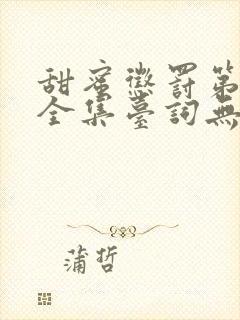 甜蜜懲罰第
全集臺詞無
蒲哲